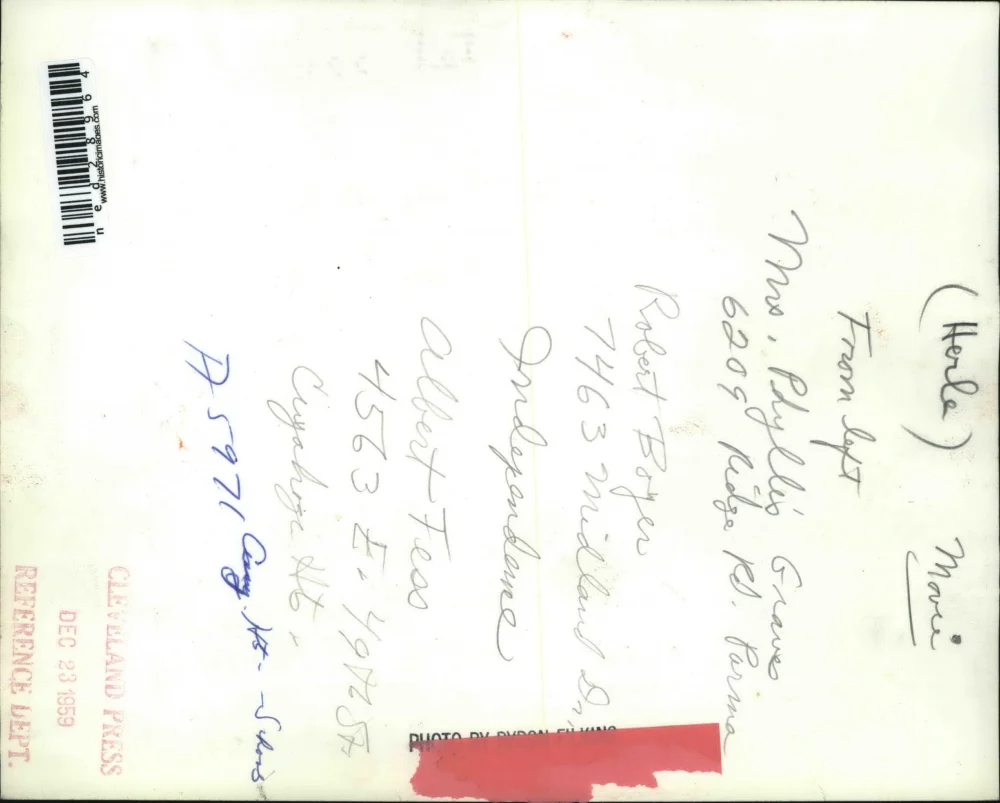 (Herla) Movie
From left
Mrs. Phyllis Graves
6209 Ridge Rd. Parma
Robert Boyer
7463 Midland Dr,
Independence
Albert Tess
4563 E. 49th St
Cuyahoga Hts.
A 5971 Cuy. Hts. - Schools
PHOTO BY BYRON FILKINS
CLEVELAND PRESS
DEC 23 1959
REFERENCE DEPT.
www.historicimages.com
ned28964